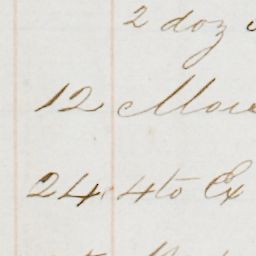 2 doz
12
24 4to Ex